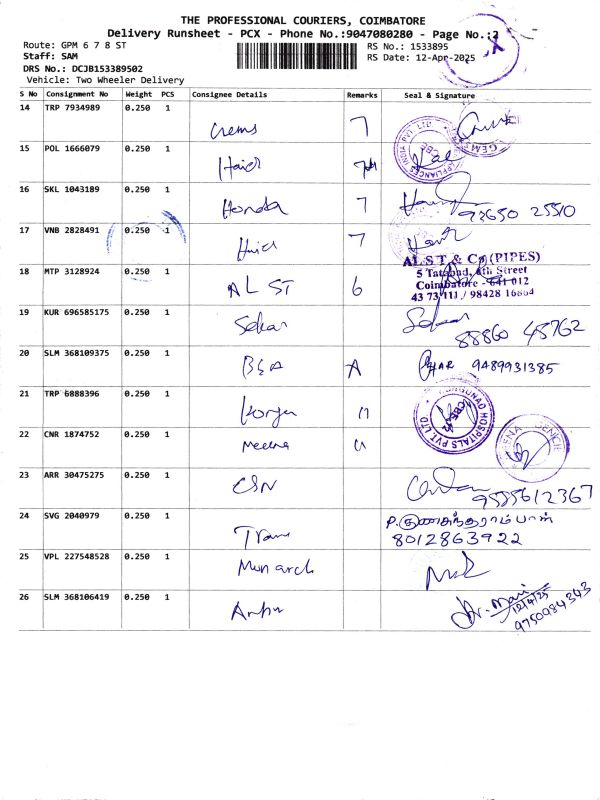 THE PROFESSIONAL COURIERS, COIMBATORE
Delivery Runsheet - PCX - Phone No.:9047080280 - Page No.:2
Route: GPM 6 7 8 ST
RS No.: 1533895
Staff: SAM
RS Date: 12-Apr-2025
DRS No.: DCJB153389502
Vehicle: Two Wheeler Delivery
S No Consignment No Weight PCS Consignee Details Remarks Seal & Signature
14 TRP 7934989 0.250 1 Gems 7
15 POL 1666079 0.250 1
16 SKL 1043189 0.250 1 Honda 7 93650 25510
17 VNB 2828491 0.250 1 7
18 MTP 3128924 0.250 1 AL ST 6
AL.S.T. & Co (PIPES)
5 Tatabad, 4th Street
Coimbatore - 641 012
43 73 111 / 98428 16864
19 KUR 696585175 0.250 1 Sekar 88860 45762
20 SLM 368109375 0.250 1 BSA A 9489931385
21 TRP 6888396 0.250 1 Kongu
HOSPITALS PVT LTD
22 CNR 1874752 0.250 1 Meena
23 ARR 30475275 0.250 1 CSN 9555612367
24 SVG 2040979 0.250 1 Trans 8012863922
25 VPL 227548528 0.250 1 Monarch
26 SLM 368106419 0.250 1 12/4/25 9750984343